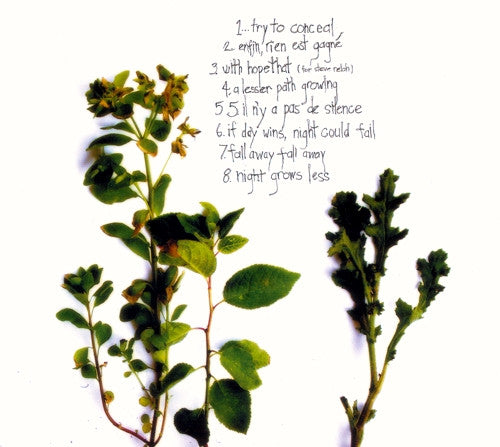 1... try to conceal
2. enfin, rien est gagné
3. with hope that (for steve reich)
4. a lesser path growing
5. 5. il n'y a pas de silence
6. if day wins, night could fall
7. fall away fall away
8. night grows less